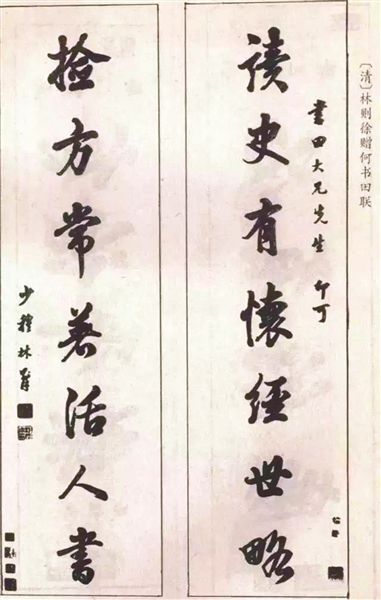 〔清〕林则徐赠何书田联
書田大兄先生 印可
讀史有懷經世略
撿方常著活人書
少穆林